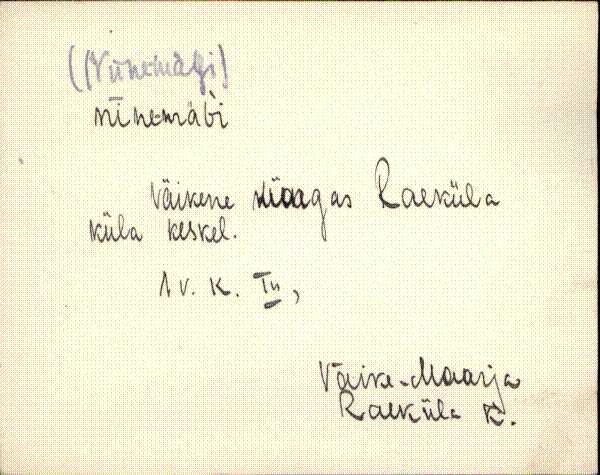 (Niinemägi)
nīnemäɢ̀i
Väikene küngas Raeküla
küla keskel.
1 v. K. III,
Väike-Maarja
Raeküla k.